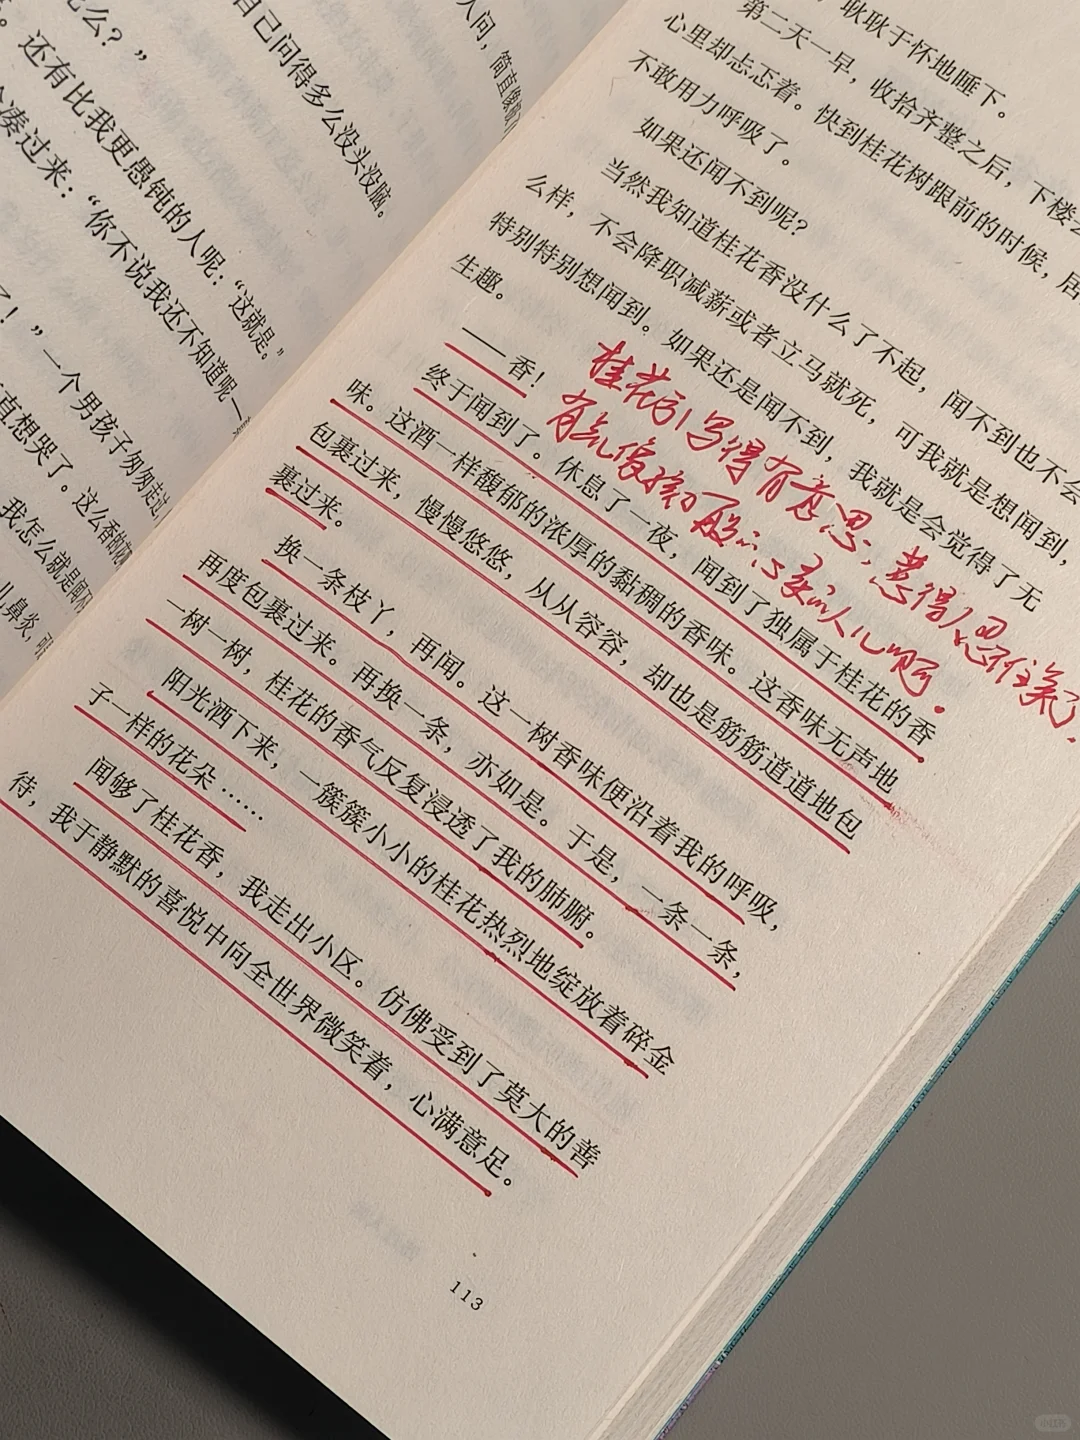 么？”
。还有比我更愚钝的人呢：“这就是。”
凑过来：“你不说我还不知道呢—
了！”一个男孩子匆匆走过
直想哭了。这么香的
我怎么就是闻不
儿鼻炎，
人问，简直像
自己问得多么没头没脑。
，耿耿于怀地睡下。
第二天一早，收拾齐整之后，下楼
心里却忐忑着。快到桂花树跟前的时候，居
不敢用力呼吸了。
如果还闻不到呢？
当然我知道桂花香没什么了不起，闻不到也不会
么样，不会降职减薪或者立马就死，可我就是想闻到，
特别特别想闻到。如果还是闻不到，我就是会觉得了无
生趣。
——香！
终于闻到了。休息了一夜，闻到了独属于桂花的香
味。这酒一样馥郁的浓厚的黏稠的香味。这香味无声地
包裹过来，慢慢悠悠，从从容容，却也是筋筋道道地包
裹过来。
换一条枝丫，再闻。这一树香味便沿着我的呼吸，
再度包裹过来。再换一条，亦如是。于是，一条一条，
一树一树，桂花的香气反复浸透了我的肺腑。
阳光洒下来，一簇簇小小的桂花热烈地绽放着碎金
子一样的花朵……
闻够了桂花香，我走出小区。仿佛受到了莫大的善
待，我于静默的喜悦中向全世界微笑着，心满意足。
桂花引写得有意思，惹得人忍不住笑了，
113